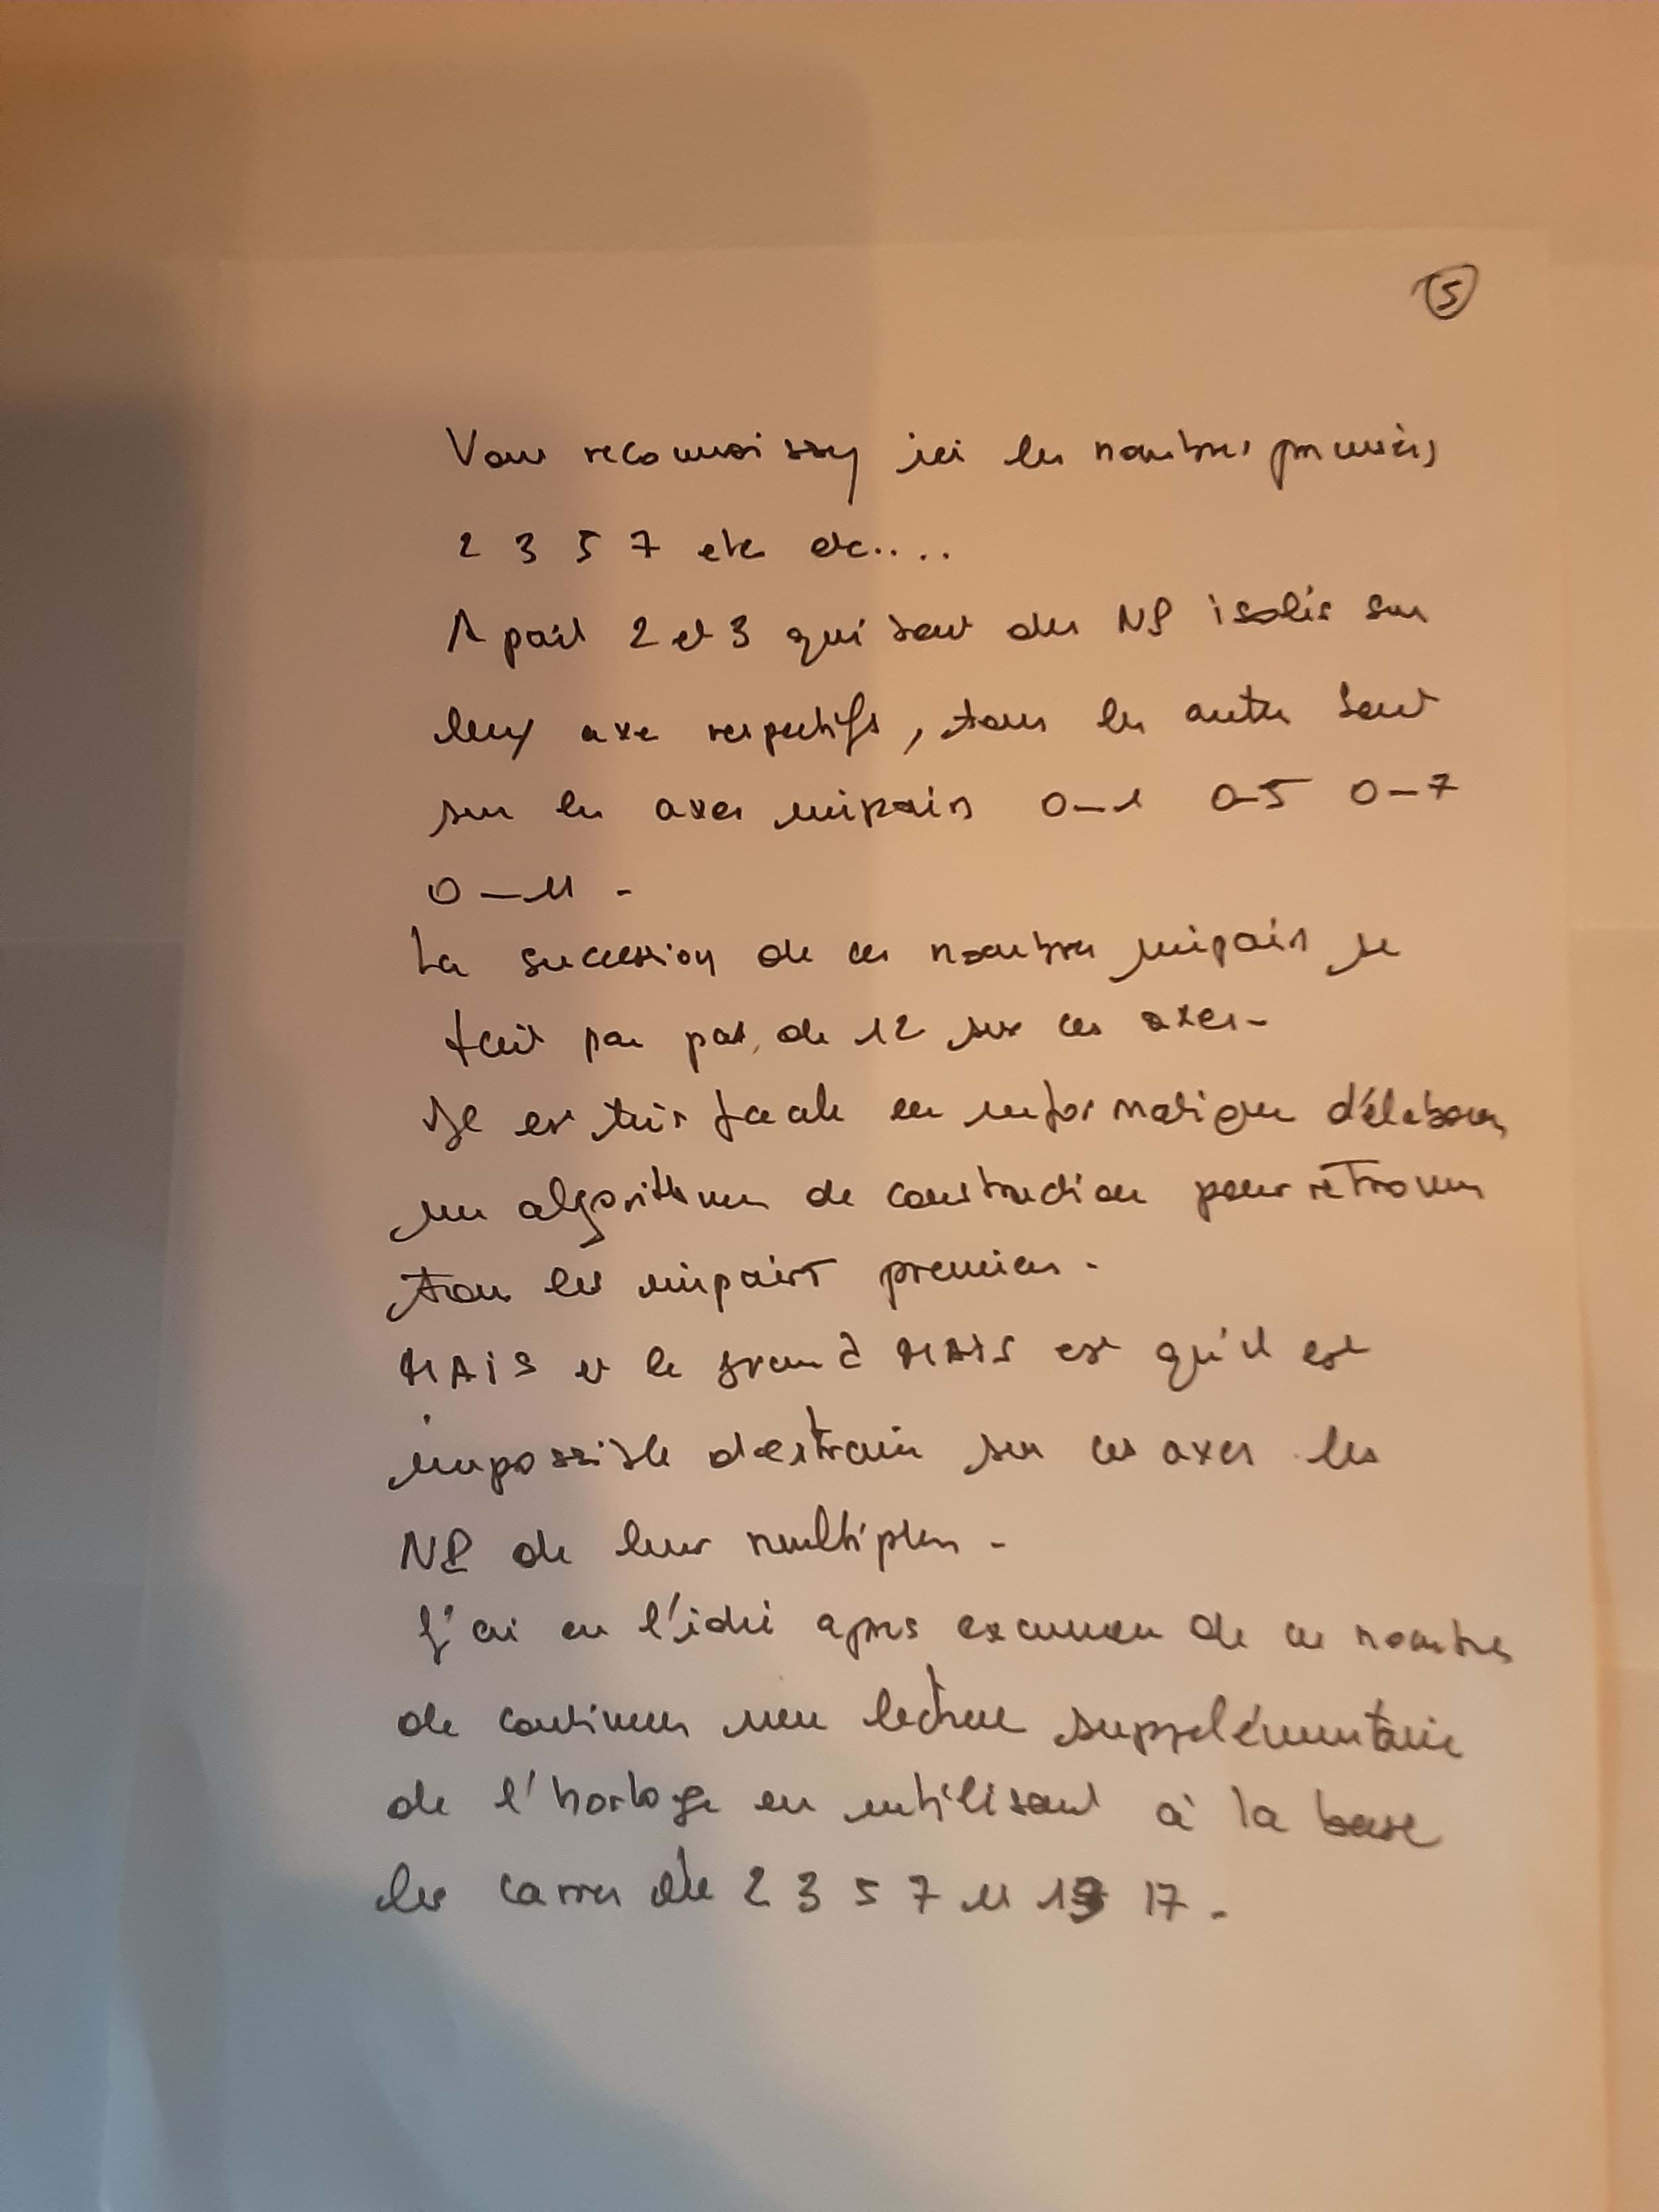 5
Vous reconnaissez ici les nombres premiers
2 3 5 7 etc etc....
A part 2 et 3 qui sont des NP isolés sur
leur axe respectifs, tous les autres sont
sur les axes impairs 0-1 0-5 0-7
0-11 -
La succession de ces nombres impairs se
fait par pas de 12 sur ces axes-
Il est très facile en informatique d'élaborer
un algorithme de construction pour retrouver
tous les impairs premiers -
MAIS et le grand MAIS est qu'il est
impossible d'extraire sur ces axes les
NP de leur multiples -
J'ai eu l'idée après examen de ces nombres
de continuer une lecture supplémentaire
de l'horloge en utilisant à la base
les carrés de 2 3 5 7 11 13 17 -